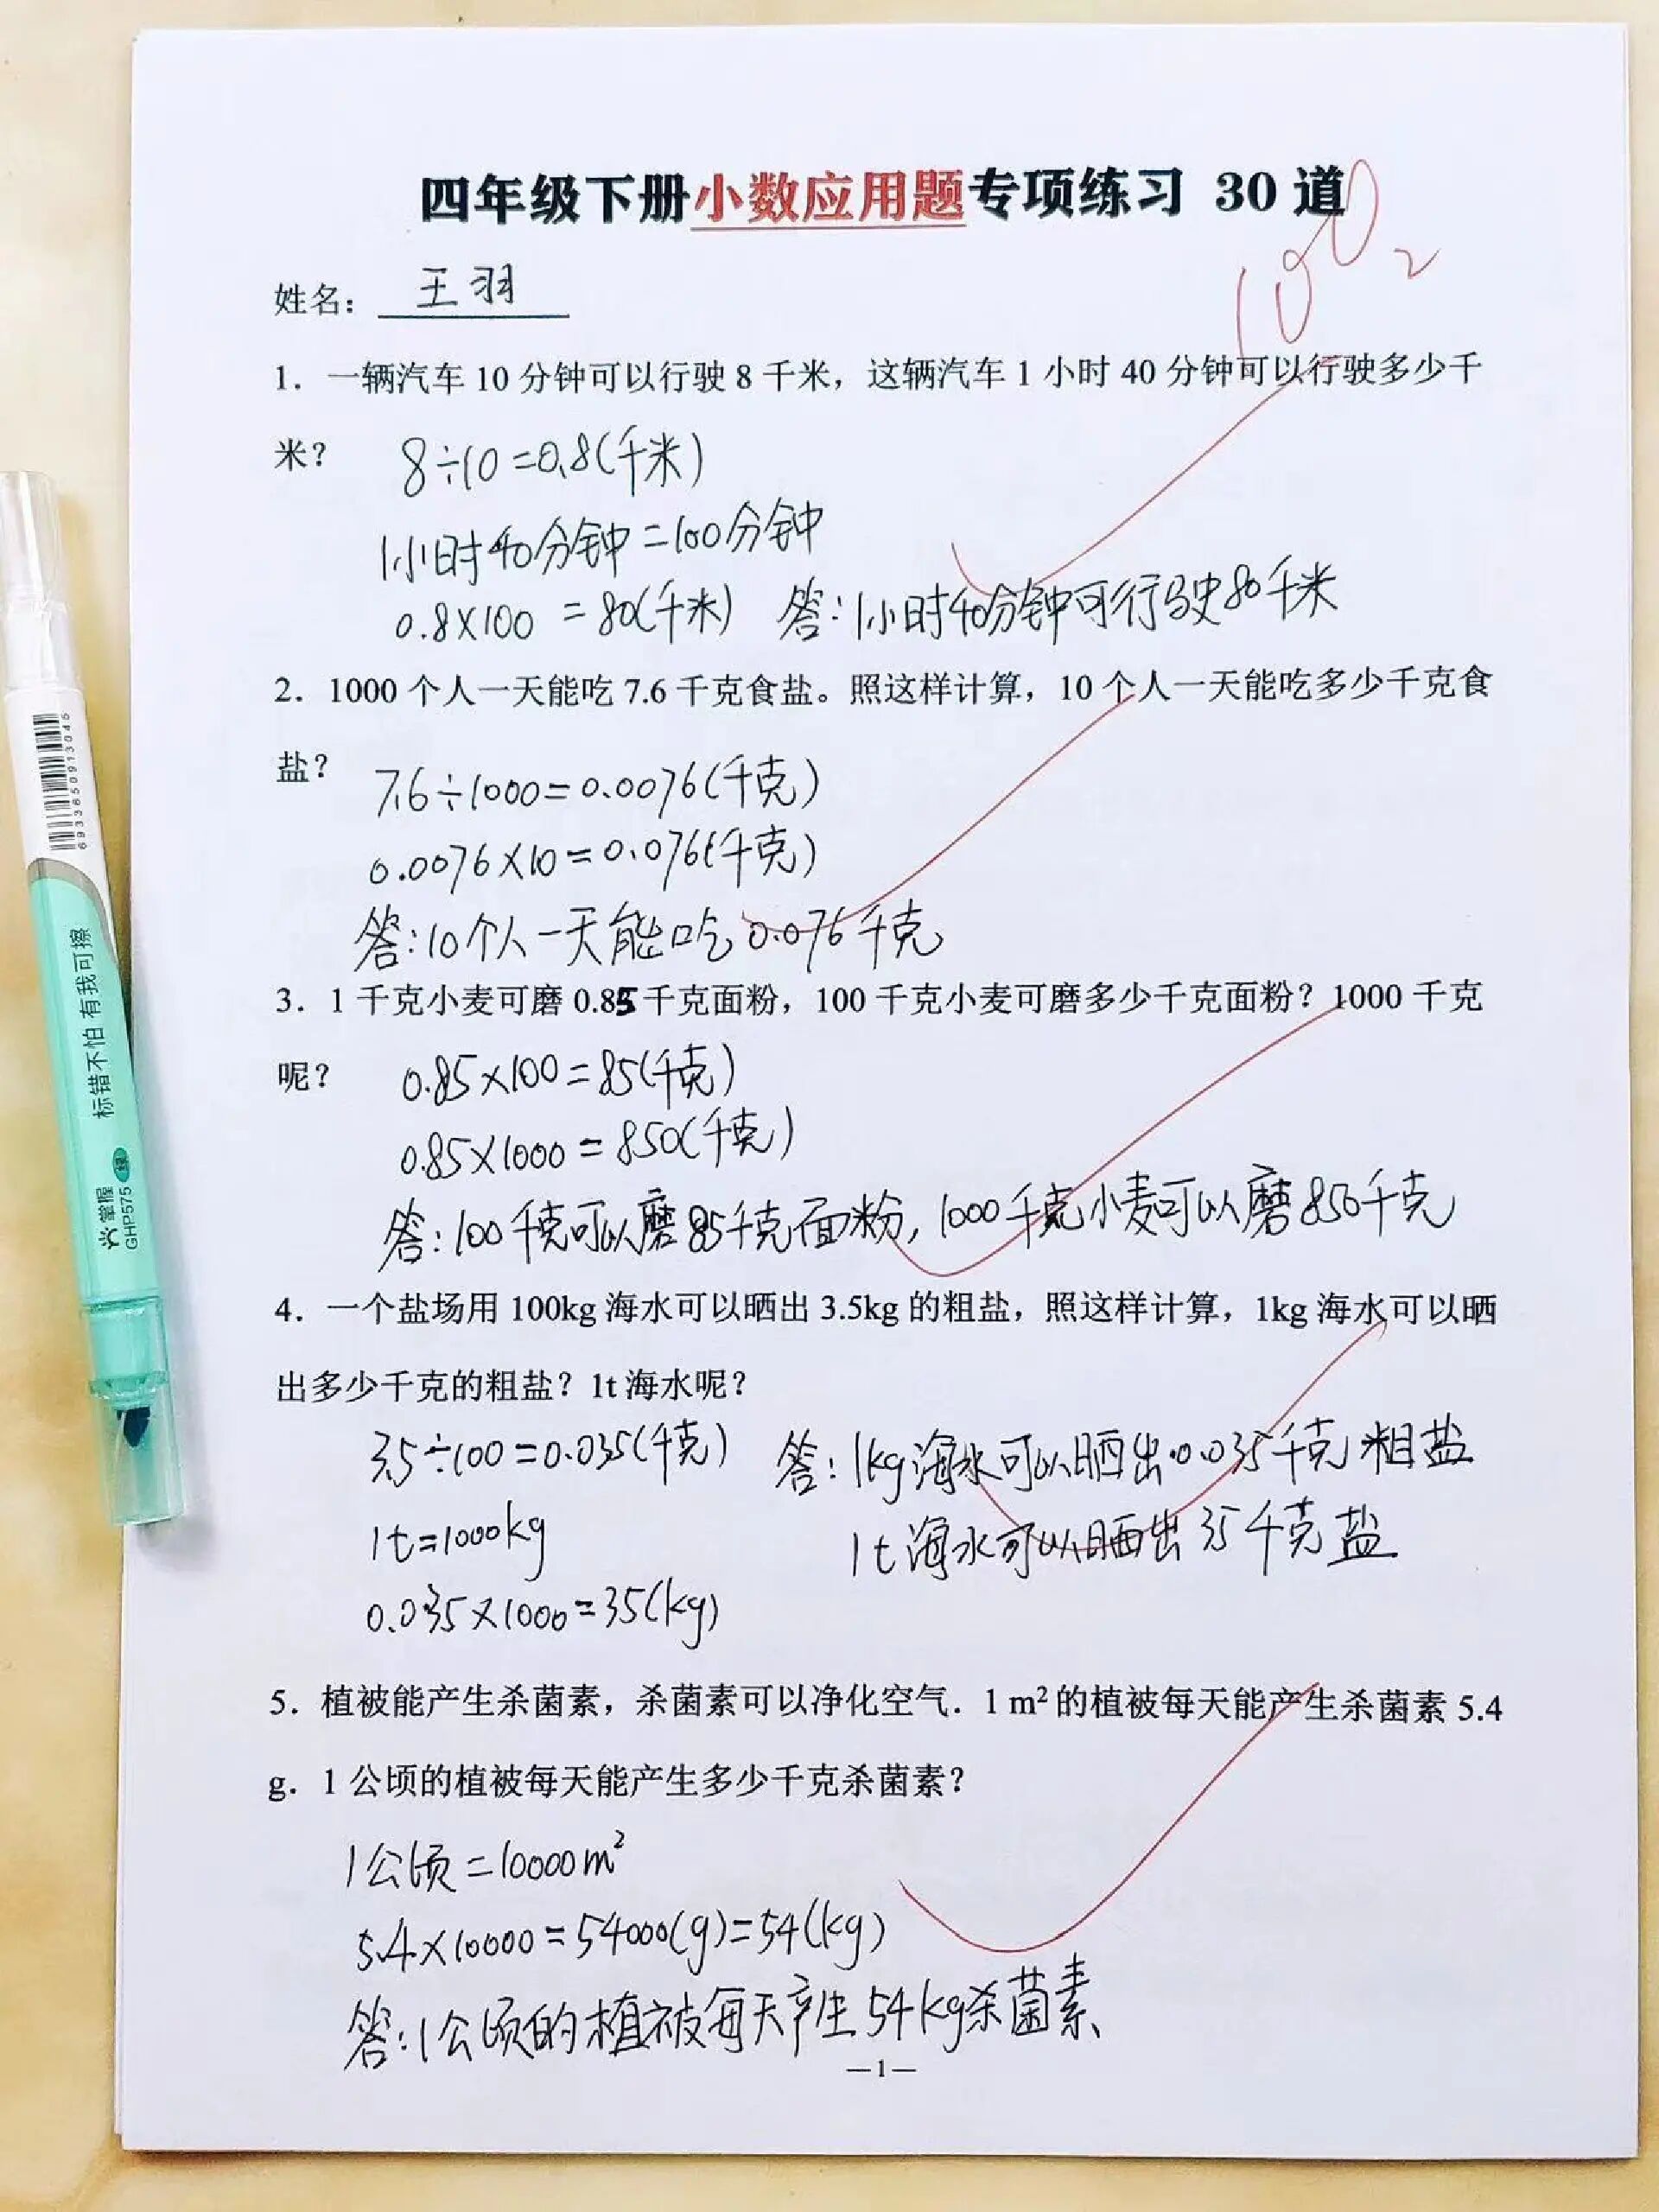 四年级下册小数应用题专项练习 30 道
100
2
姓名： 王羽
1．一辆汽车 10 分钟可以行驶 8 千米，这辆汽车 1 小时 40 分钟可以行驶多少千
米？ 8÷10=0.8(千米)
1小时40分钟=100分钟
0.8×100=80(千米) 答:1小时40分钟可行驶80千米
2．1000 个人一天能吃 7.6 千克食盐。照这样计算，10 个人一天能吃多少千克食
盐？ 7.6÷1000=0.0076(千克)
0.0076×10=0.076(千克)
答:10个人一天能吃0.076千克
3．1 千克小麦可磨 0.85 千克面粉，100 千克小麦可磨多少千克面粉？1000 千克
呢？ 0.85×100=85(千克)
0.85×1000=850(千克)
答:100千克可以磨85千克面粉,1000千克小麦可以磨850千克
4．一个盐场用 100kg 海水可以晒出 3.5kg 的粗盐，照这样计算，1kg 海水可以晒
出多少千克的粗盐？1t 海水呢？
3.5÷100=0.035(千克) 答:1kg海水可以晒出0.035千克粗盐
1t=1000kg 1t海水可以晒出35千克盐
0.035×1000=35(kg)
5．植被能产生杀菌素，杀菌素可以净化空气．1 m²的植被每天能产生杀菌素 5.4
g．1 公顷的植被每天能产生多少千克杀菌素？
1公顷=10000m²
5.4×10000=54000(g)=54(kg)
答:1公顷的植被每天产生54kg杀菌素
—1—
6933650913045
标错不怕 有我可擦
掌握
绿
GHP575